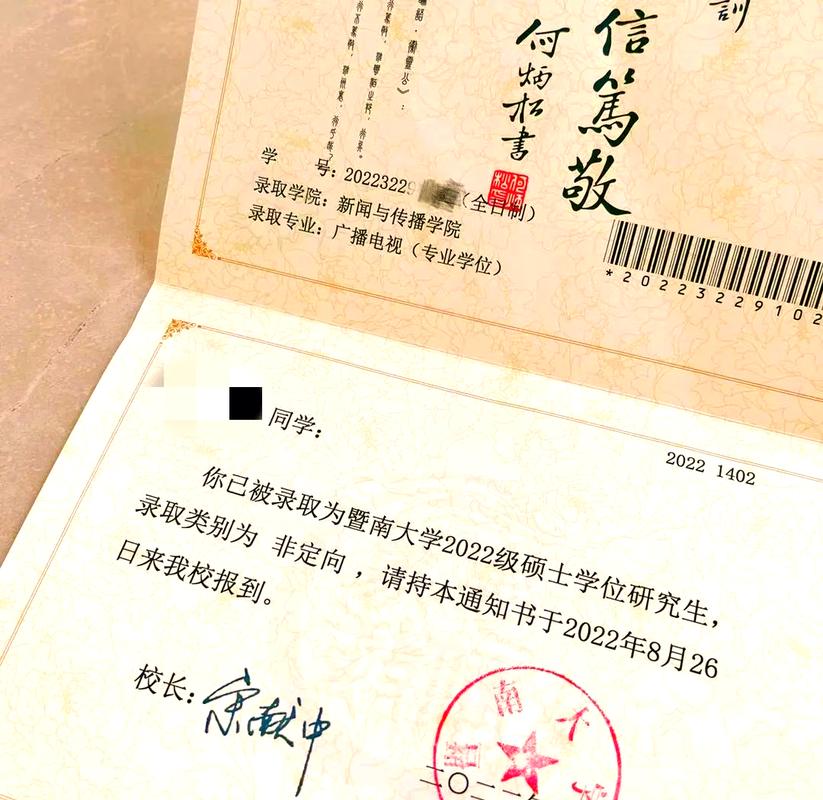 訓
信篤敬
何炳松書
衛靈公》：
学 号：20223229（全日制）
录取学院：新闻与传播学院
录取专业：广播电视（专业学位）
*20223229102
同学：
2022 1402
你已被录取为暨南大学2022级硕士学位研究生，
录取类别为 非定向 ，请持本通知书于2022年8月26
日来我校报到。
校长：宋献中
暨南大学
二〇二二年